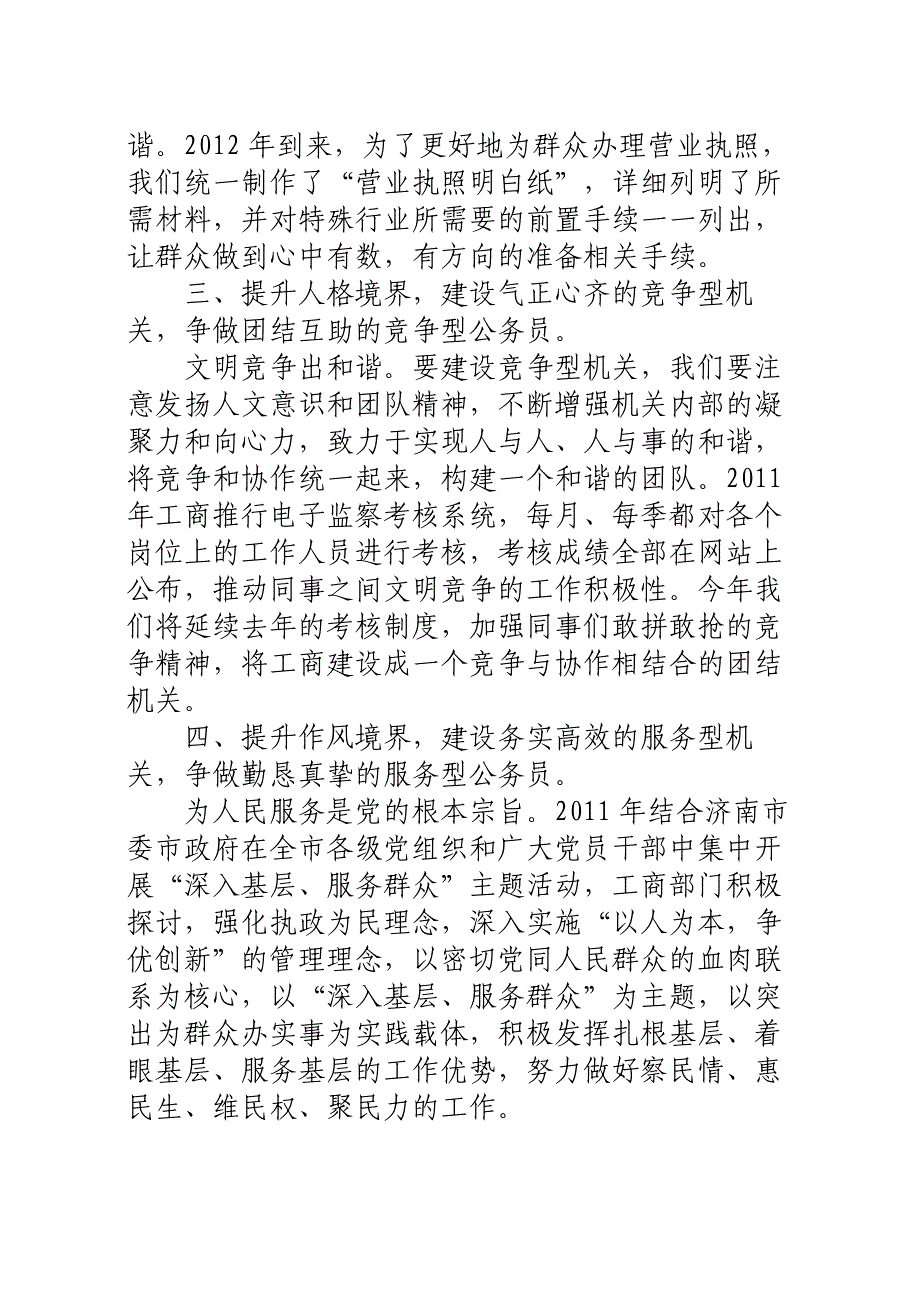 谐。2012年到来，为了更好地为群众办理营业执照，
我们统一制作了“营业执照明白纸”，详细列明了所
需材料，并对特殊行业所需要的前置手续一一列出，
让群众做到心中有数，有方向的准备相关手续。
三、提升人格境界，建设气正心齐的竞争型机
关，争做团结互助的竞争型公务员。
文明竞争出和谐。要建设竞争型机关，我们要注
意发扬人文意识和团队精神，不断增强机关内部的凝
聚力和向心力，致力于实现人与人、人与事的和谐，
将竞争和协作统一起来，构建一个和谐的团队。2011
年工商推行电子监察考核系统，每月、每季都对各个
岗位上的工作人员进行考核，考核成绩全部在网站上
公布，推动同事之间文明竞争的工作积极性。今年我
们将延续去年的考核制度，加强同事们敢拼敢抢的竞
争精神，将工商建设成一个竞争与协作相结合的团结
机关。
四、提升作风境界，建设务实高效的服务型机
关，争做勤恳真挚的服务型公务员。
为人民服务是党的根本宗旨。2011年结合济南市
委市政府在全市各级党组织和广大党员干部中集中开
展“深入基层、服务群众”主题活动，工商部门积极
探讨，强化执政为民理念，深入实施“以人为本，争
优创新”的管理理念，以密切党同人民群众的血肉联
系为核心，以“深入基层、服务群众”为主题，以突
出为群众办实事为实践载体，积极发挥扎根基层、着
眼基层、服务基层的工作优势，努力做好察民情、惠
民生、维民权、聚民力的工作。